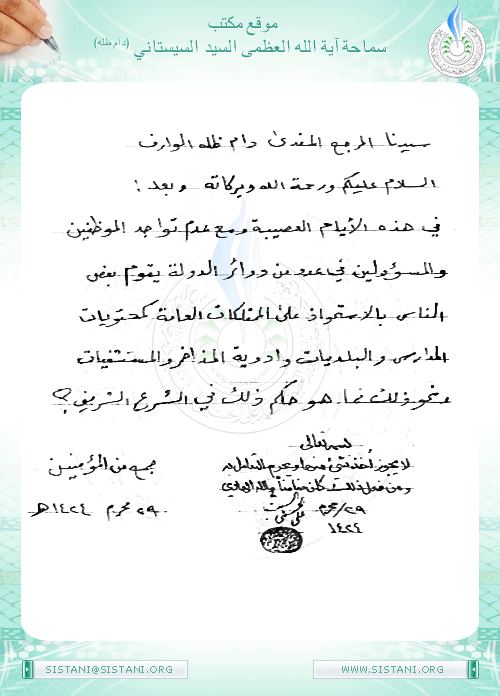 موقع مكتب
سماحة آية الله العظمى السيد السيستاني (دام ظله)
سيدنا المرجع المفدى دام ظله الوارف
السلام عليكم ورحمة الله وبركاته وبعد :
في هذه الأيام العصيبة ومع عدم تواجد الموظفين
والمسؤولين في عدد من دوائر الدولة يقوم بعض
الناس بالاستحواذ على الممتلكات العامة كمحتويات
المدارس والبلديات وادوية المذاخر والمستشفيات
ونحو ذلك فما هو حكم ذلك في الشرع الشريف ؟
بسمه تعالى
لا يجوز أخذ شيء منها ويحرم التعامل به
ومن فعل ذلك كان ضامناً والله الهادي
علي الحسيني السيستاني
٢٩/ محرم
١٤٢٤
جمع من المؤمنين
٢٩ محرم ١٤٢٤هـ
SISTANI@SISTANI.ORG
WWW.SISTANI.ORG